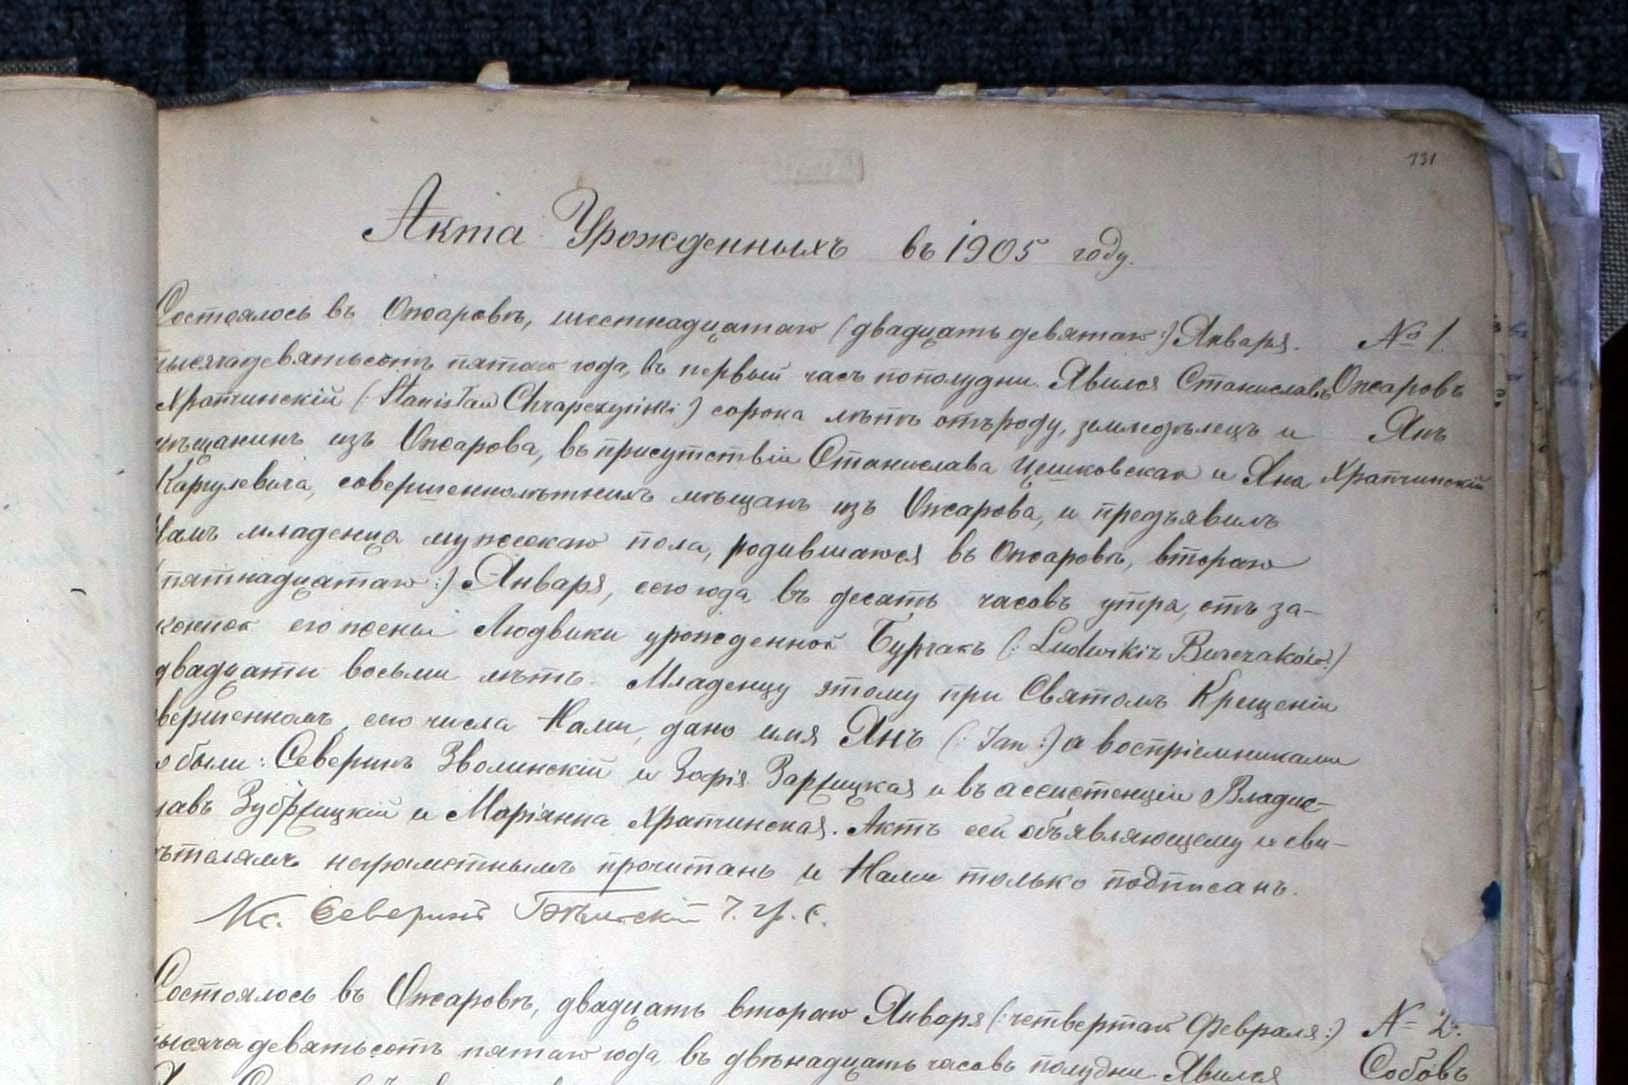 131
Акта Урожденныхъ въ 1905 году.
Состоялось въ Ожаровѣ, шестнадцатаго (двадцать девятаго:) Января. № 1.
тысячадевятьсотъ пятаго года, въ первый часъ пополудни. Явился Станиславъ Ожаровъ
Храпчинскій (: Stanisław Chrapczyński :) сорока лѣтъ отъ роду, земледѣлецъ и Янъ
мѣщанинъ изъ Ожарова, въ присутствіи Станислава Цешковскаго и Яна Храпчинскій
Каргулевича, совершеннолѣтнихъ мѣщанъ изъ Ожарова, и предъявилъ
Намъ младенца мужескаго пола, родившагося въ Ожаровѣ, втораго
(пятнадцатаго:) Января, сего года въ десять часовъ утра, отъ за-
конной его жены Людвики урожденной Бурчакъ (: Ludwiki z Burczaków:)
двадцати восьми лѣтъ. Младенцу этому при Святомъ Крещеніи
вершенномъ, сего числа Нами, дано имя Янъ (: Jan :) а воспріемниками
о были: Северинъ Зволинскій и Зофія Заржицкая и въ ассистенціи Владис-
лавъ Зубржицкій и Маріянна Храпчинская. Актъ сей объявляющему и сви-
ѣтелямъ неграмотнымъ прочитанъ и Нами только подписанъ.
Кс. Северинъ
Состоялось въ Ожаровѣ, двадцать втораго Января (: четвертаго Февраля:) № 2.
тысяча девятьсотъ пятаго года, въ двѣнадцать часовъ полудни. Явился Собовъ